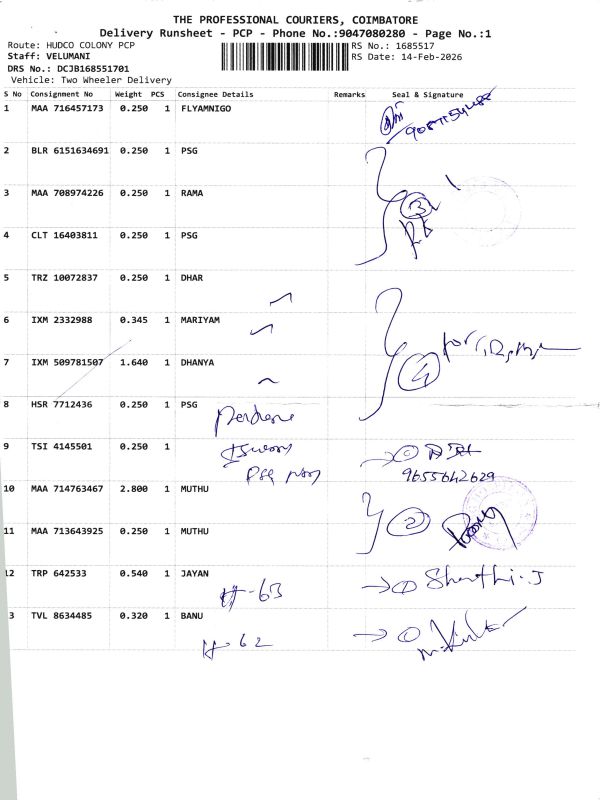 THE PROFESSIONAL COURIERS, COIMBATORE
Delivery Runsheet - PCP - Phone No.:9047080280 - Page No.:1
Route: HUDCO COLONY PCP RS No.: 1685517
Staff: VELUMANI RS Date: 14-Feb-2026
DRS No.: DCJB168551701
Vehicle: Two Wheeler Delivery
S No Consignment No Weight PCS Consignee Details Remarks Seal & Signature
1 MAA 716457173 0.250 1 FLYAMNIGO
2 BLR 6151634691 0.250 1 PSG
3 MAA 708974226 0.250 1 RAMA
3
4 CLT 16403811 0.250 1 PSG
5 TRZ 10072837 0.250 1 DHAR
6 IXM 2332988 0.345 1 MARIYAM
7 IXM 509781507 1.640 1 DHANYA
4
8 HSR 7712436 0.250 1 PSG
9 TSI 4145501 0.250 1
9655642629
10 MAA 714763467 2.800 1 MUTHU
2
11 MAA 713643925 0.250 1 MUTHU
12 TRP 642533 0.540 1 JAYAN
H-63 1 Shanthi.J
3 TVL 8634485 0.320 1 BANU
H-62 1